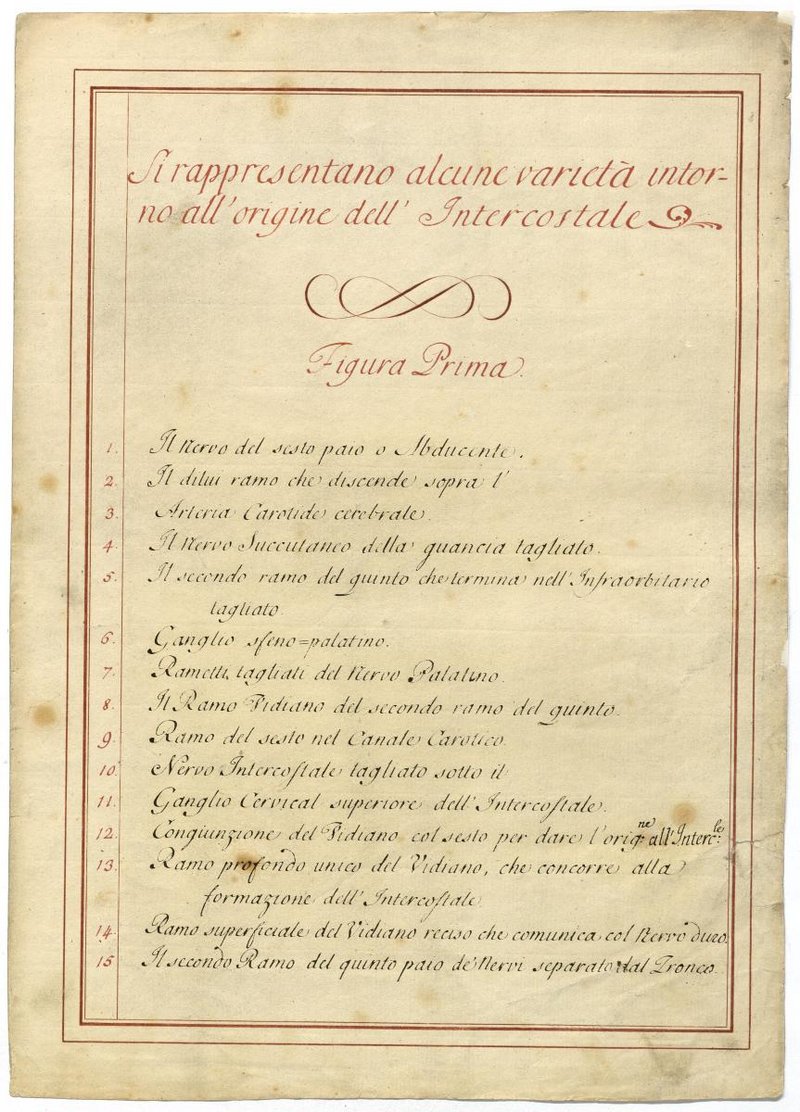 Si rappresentano alcune varietà intor-
no all'origine dell' Intercostale
Figura Prima.
1. Il Nervo del sesto paio o Abducente.
2. Il di lui ramo che discende sopra l'
3. Arteria Carotide cerebrale.
4. Il Nervo Succutaneo della guancia tagliato.
5. Il secondo ramo del quinto che termina nell'Infraorbitario
tagliato.
6. Ganglio sfeno=palatino.
7. Rametti tagliati del Nervo Palatino.
8. Il Ramo Vidiano del secondo ramo del quinto.
9. Ramo del sesto nel Canale Carotico.
10. Nervo Intercostale tagliato sotto il
11. Ganglio Cervical superiore dell'Intercostale.
12. Congiunzione del Vidiano col sesto per dare l'orig.ne all'Interc.le
13. Ramo profondo unico del Vidiano, che concorre alla
formazione dell'Intercostale
14. Ramo superficiale del Vidiano reciso che comunica col Nervo duro.
15 Il secondo Ramo del quinto paio de' Nervi separato dal Tronco.